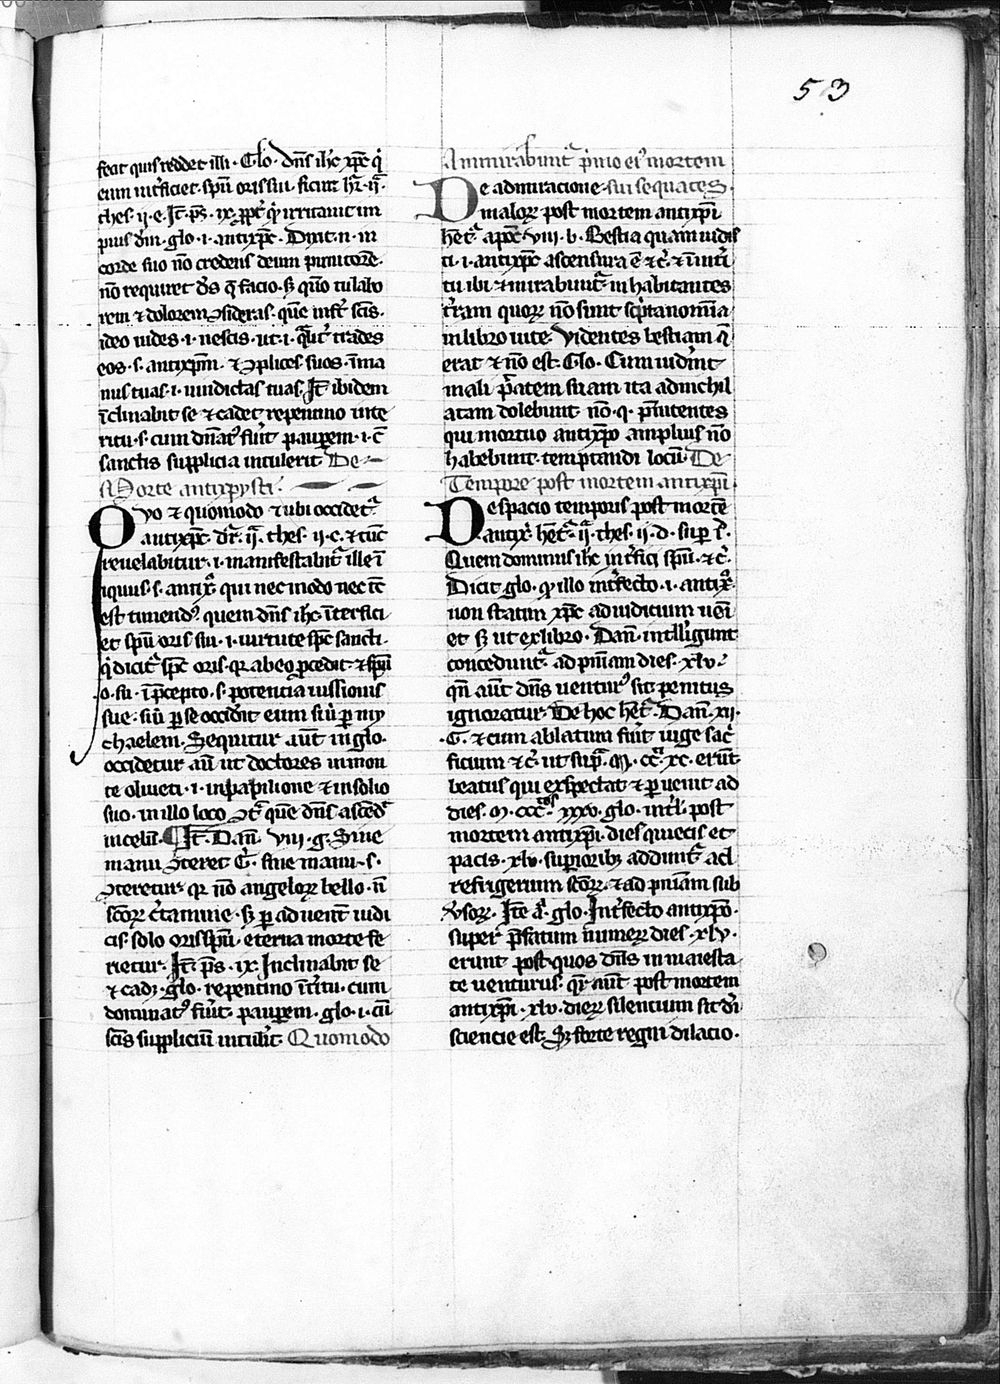 53
feat quis reddet illi · Glo · dn̄s ih̄c xp̄c q͛
eum int͛ficiet · spū oris sui · sicut hr̄ · ii ·
thes · ii · e · It̄ · ps̄ · ix · ꝓpt͛ q͛ irritauit im
pius dm̄ · glo · i · antixp̄c · Dixit · n · in
corde suo nō credens deum punitorē ·
nō requiret ds̄ q̄ facio · sꝫ q̄uo tu labo
rem ⁊ dolorem ꝯsideras · que inf͛t scīs ·
ideo uides · i · nescis · ut · i · qualit͛ trades
eos · s · antixp̄m · ⁊ ꝯplices suos · ī ma
nus tuas · i · uindictas tuas · It̄ ibidem
īclinabit se ⁊ cadet repentino inte
ritu · s · cum dn̄atꝰ fu͛it pauꝑem · i · c̄
sanctis supplicia intulerit De
Morte antixpysti ·
Qvo ⁊ quomodo ⁊ ubi occidet᷑
antixp̄c dr̄ · ii · thes · ii · c · ⁊ tūc
reuelabitur · i · manifestabit᷑ ille ī
iquus · s · antix͛ · qui nec modo nec tc̄
est timendꝰ quem dn̄s ih̄c īterfici
et spū oris sui · i · uirtute spc̄ sancti ·
q͛ dicit᷑ spc̄ oris · qꝛ ab eo ꝓcedit · ⁊ spū
o · su · ī p̄cepto · s · potencia iussionis
sue · siū ꝑ se occid͛it eum siū ꝑ my
chaelem · Sequitur aūt in glo ·
occidetur aū ut doctores in mon
te oliueti · i · in papilione ⁊ in solio
suo · in illo loco ꝯt͛ quē dn̄s ascēd͛
in celū · ¶ It̄ · Dan̄ · viii · g · Sine
manu ꝯteret͛ G͛ · sine manu · s ·
ꝯteretur qꝛ nō angeloꝝ bello · ń
scōꝝ c͛tamine · sꝫ ꝑ aduent̄ iudi
cis solo oris spū · eterna morte fe
rietur · It̄ ps̄ · ix · Inclinabit se
⁊ cadꝫ · glo · repentino int͛itu · cum
dominatꝰ fu͛it pauꝑem · glo · i · cū
scīs suppliciū intul͛it · Quomodo
Ammirabunt᷑ p͛mo eiꝰ mortem
De admiracione sui sequaces ·
maloꝝ post mortem antixp̄i
het͛ apoc̄ viii · b · Bestia quam uidis
ti · i · antixp̄c ascensura ē ⁊ c͛ · ⁊ īuit͛i
tu ibi ⁊ mirabunt᷑ inhabitantes
t͛ram quoꝝ nō sunt sc͛pta nom̄a
in libro uite · Videntes bestiam q̄
erat ⁊ nō est · Glo · Cum uid͛int
mali p͛atem suam ita adnichil
atam dolebunt nō · q · p̄nitentes
qui mortuo antixp̄o amplius nō
habebunt temptandi locū De
Tempore post mortem antixp̄i
De spacio temporis post mortē
antix͛ · het͛ ii · thes · ii · d · suꝑ i͛ ·
Quem dominus ih̄c int͛fici spū · ⁊ c͛ ·
Dicit glo · ꝙ illo int͛fecto · i · antix͛ ·
non statim xp̄c ad iudicium ueni
et sꝫ ut ex libro · Dan̄ · intlligunt
conceduntur ad pn̄iam dies · xlv ·
qn̄ aūt dn̄s venturꝰ sit penitus
ignoratur · De hoc het͛ · Dan̄ · xii ·
· G · ⁊ cum ablatum fu͛it iuge sac͛
ficium ⁊ c͛ · ut sup͛ · m · cc · xc · erūt
beatus qui exspectat ⁊ ꝑuenit ad
dies · m · ccc · xxxv · glo · int͛l · post
mortem antixp̄i dies quiecis et
pacis · xlv · superioribꝫ addunt᷑ ad
refrigerium scōꝝ · ⁊ ad pn̄iam sub
u͛soꝝ · Ite a͛ glo · Int͛fecto antixp̄o ·
super p̄fatum numeꝝ dies · xlv ·
erunt post quos dn̄s in maiesta
te uenturus · qꝛ aūt post mortem
antixp̄i · xlv · dieꝝ silentium sit di͛
sciencie est · Sꝫ forte regni dilacio ·